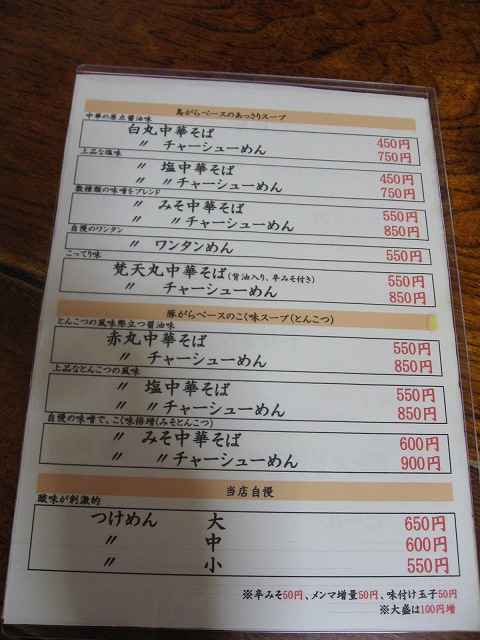 鳥がらベースのあっさりスープ
中華の原点醤油味
白丸中華そば 450円
〃 チャーシューめん 750円
上品な塩味
〃 塩中華そば 450円
〃 〃チャーシューめん 750円
数種類の味噌をブレンド
〃 みそ中華そば 550円
〃 〃チャーシューめん 850円
自慢のワンタン
〃 ワンタンめん 550円
こってり味
梵天丸中華そば(背油入り、辛みそ付き) 550円
〃 チャーシューめん 850円
豚がらベースのこく味スープ(とんこつ)
とんこつの風味際立つ醤油味
赤丸中華そば 550円
〃 チャーシューめん 850円
上品なとんこつの風味
〃 塩中華そば 550円
〃 〃チャーシューめん 850円
自慢の味噌で、こく味倍増(みそとんこつ)
〃 みそ中華そば 600円
〃 〃チャーシューめん 900円
当店自慢
酸味が刺激的
つけめん 大 650円
〃 中 600円
〃 小 550円
※辛みそ50円、メンマ増量50円、味付け玉子50円
※大盛は100円増